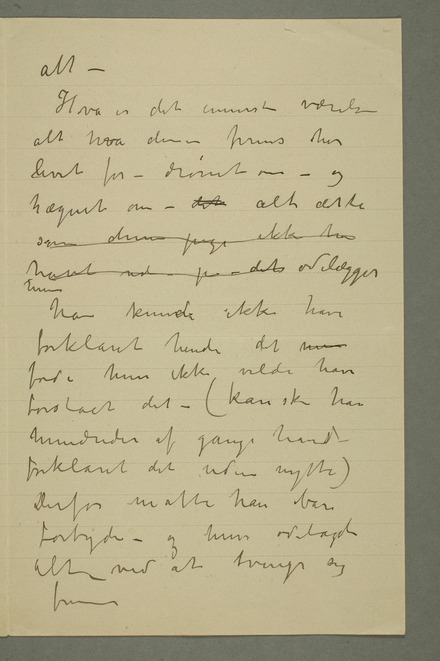 alt –
Hva er det inderste værelse
alt hva denne prins har
levet for – drømt om – og
hægnet om – det alt dette
som denne pige ikke har
ødelægger
hun
han kunde ikke have
forklaret hende det
fordi hun ikke vilde have
forstaaet det – (kanske han
hundreder af gange havde
forklaret det uden nytte)
Derfor maatte han bare
forbyde – og hun ødelagde
alt ved at tvinge sig
frem